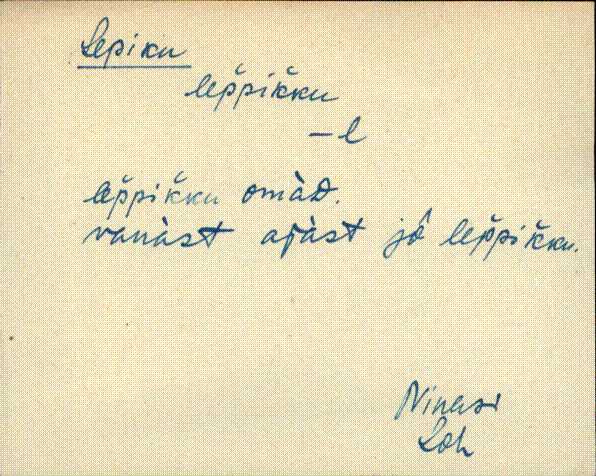 Lepiku
lep̆pik̆ku
— l
lep̆pik̆ku omàD.
vanàst ajàst jô lep̆pik̆ku.
Ninasi
Loh